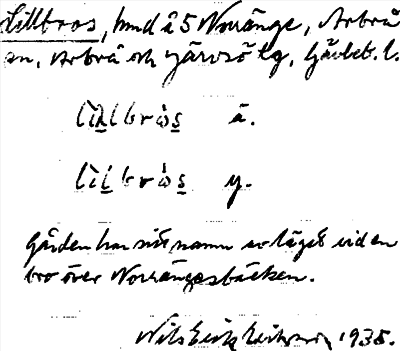 Lillbros, hmd å 5 Norränge, Arbrå
sn, Arbrå och Järvsö tg, Gävleb. l.
lìlˋlbròs ä.
lìlˋbròs y.
Gården har sitt namn av läget vid en
bro över Norrängesbäcken.
Nils Erik 1935.